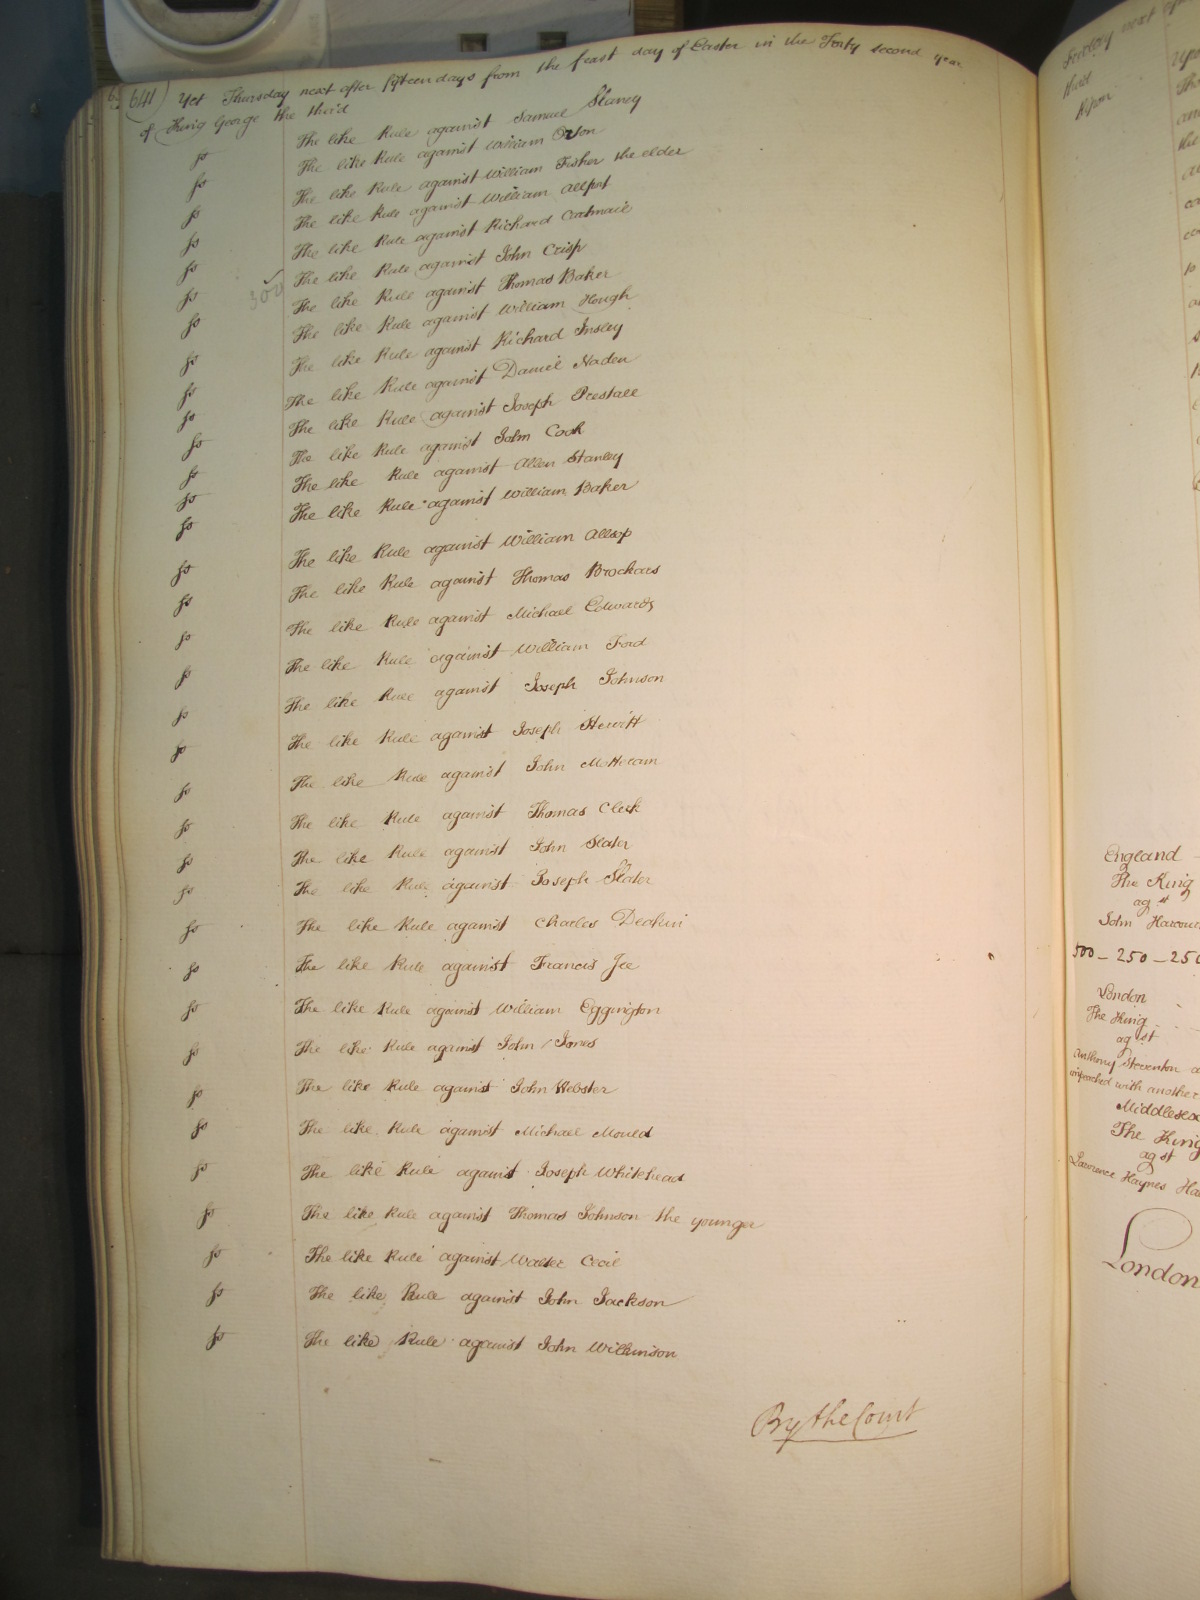 641) Yet Thursday next after fifteen days from the feast day of Easter in the Forty second year
of King George the third
The like Rule against Samuel Slaney
The like Rule against William Orson
The like Rule against William Fisher the elder
The like Rule against William Allport
The like Rule against Richard Cartmail
The like Rule against John Crisp
300
The like Rule against Thomas Baker
The like Rule against William Hough
The like Rule against Richard Insley
The like Rule against Daniel Naden
The like Rule against Joseph Prestall
The like Rule against John Cook
The like Rule against Allen Stanley
The like Rule against William Baker
The like Rule against William Allsop
The like Rule against Thomas Brockars
The like Rule against Michael Edwards
The like Rule against William Ford
The like Rule against Joseph Johnson
The like Rule against Joseph Hewitt
The like Rule against John
The like Rule against Thomas Clerk
The like Rule against John Slater
The like Rule against Joseph Slater
The like Rule against Charles Deakin
The like Rule against Francis Jee
The like Rule against William Eggington
The like Rule against John Jones
The like Rule against John Webster
The like Rule against Michael Mould
The like Rule against Joseph Whitehead
The like Rule against Thomas Johnson the younger
The like Rule against Walter Cecil
The like Rule against John Jackson
The like Rule against John Wilkinson
By the Court
third
Upon
England
The King
agst
John
500 - 250 - 250
London
The King
agst
Anthony Steventon
impeached with another
Middlesex
The King
agst
Lawrence Haynes
London